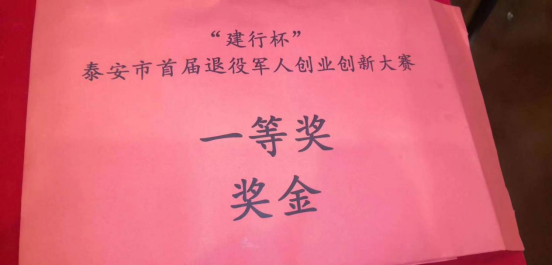 “建行杯”
泰安市首届退役军人创业创新大赛
一等奖
奖金